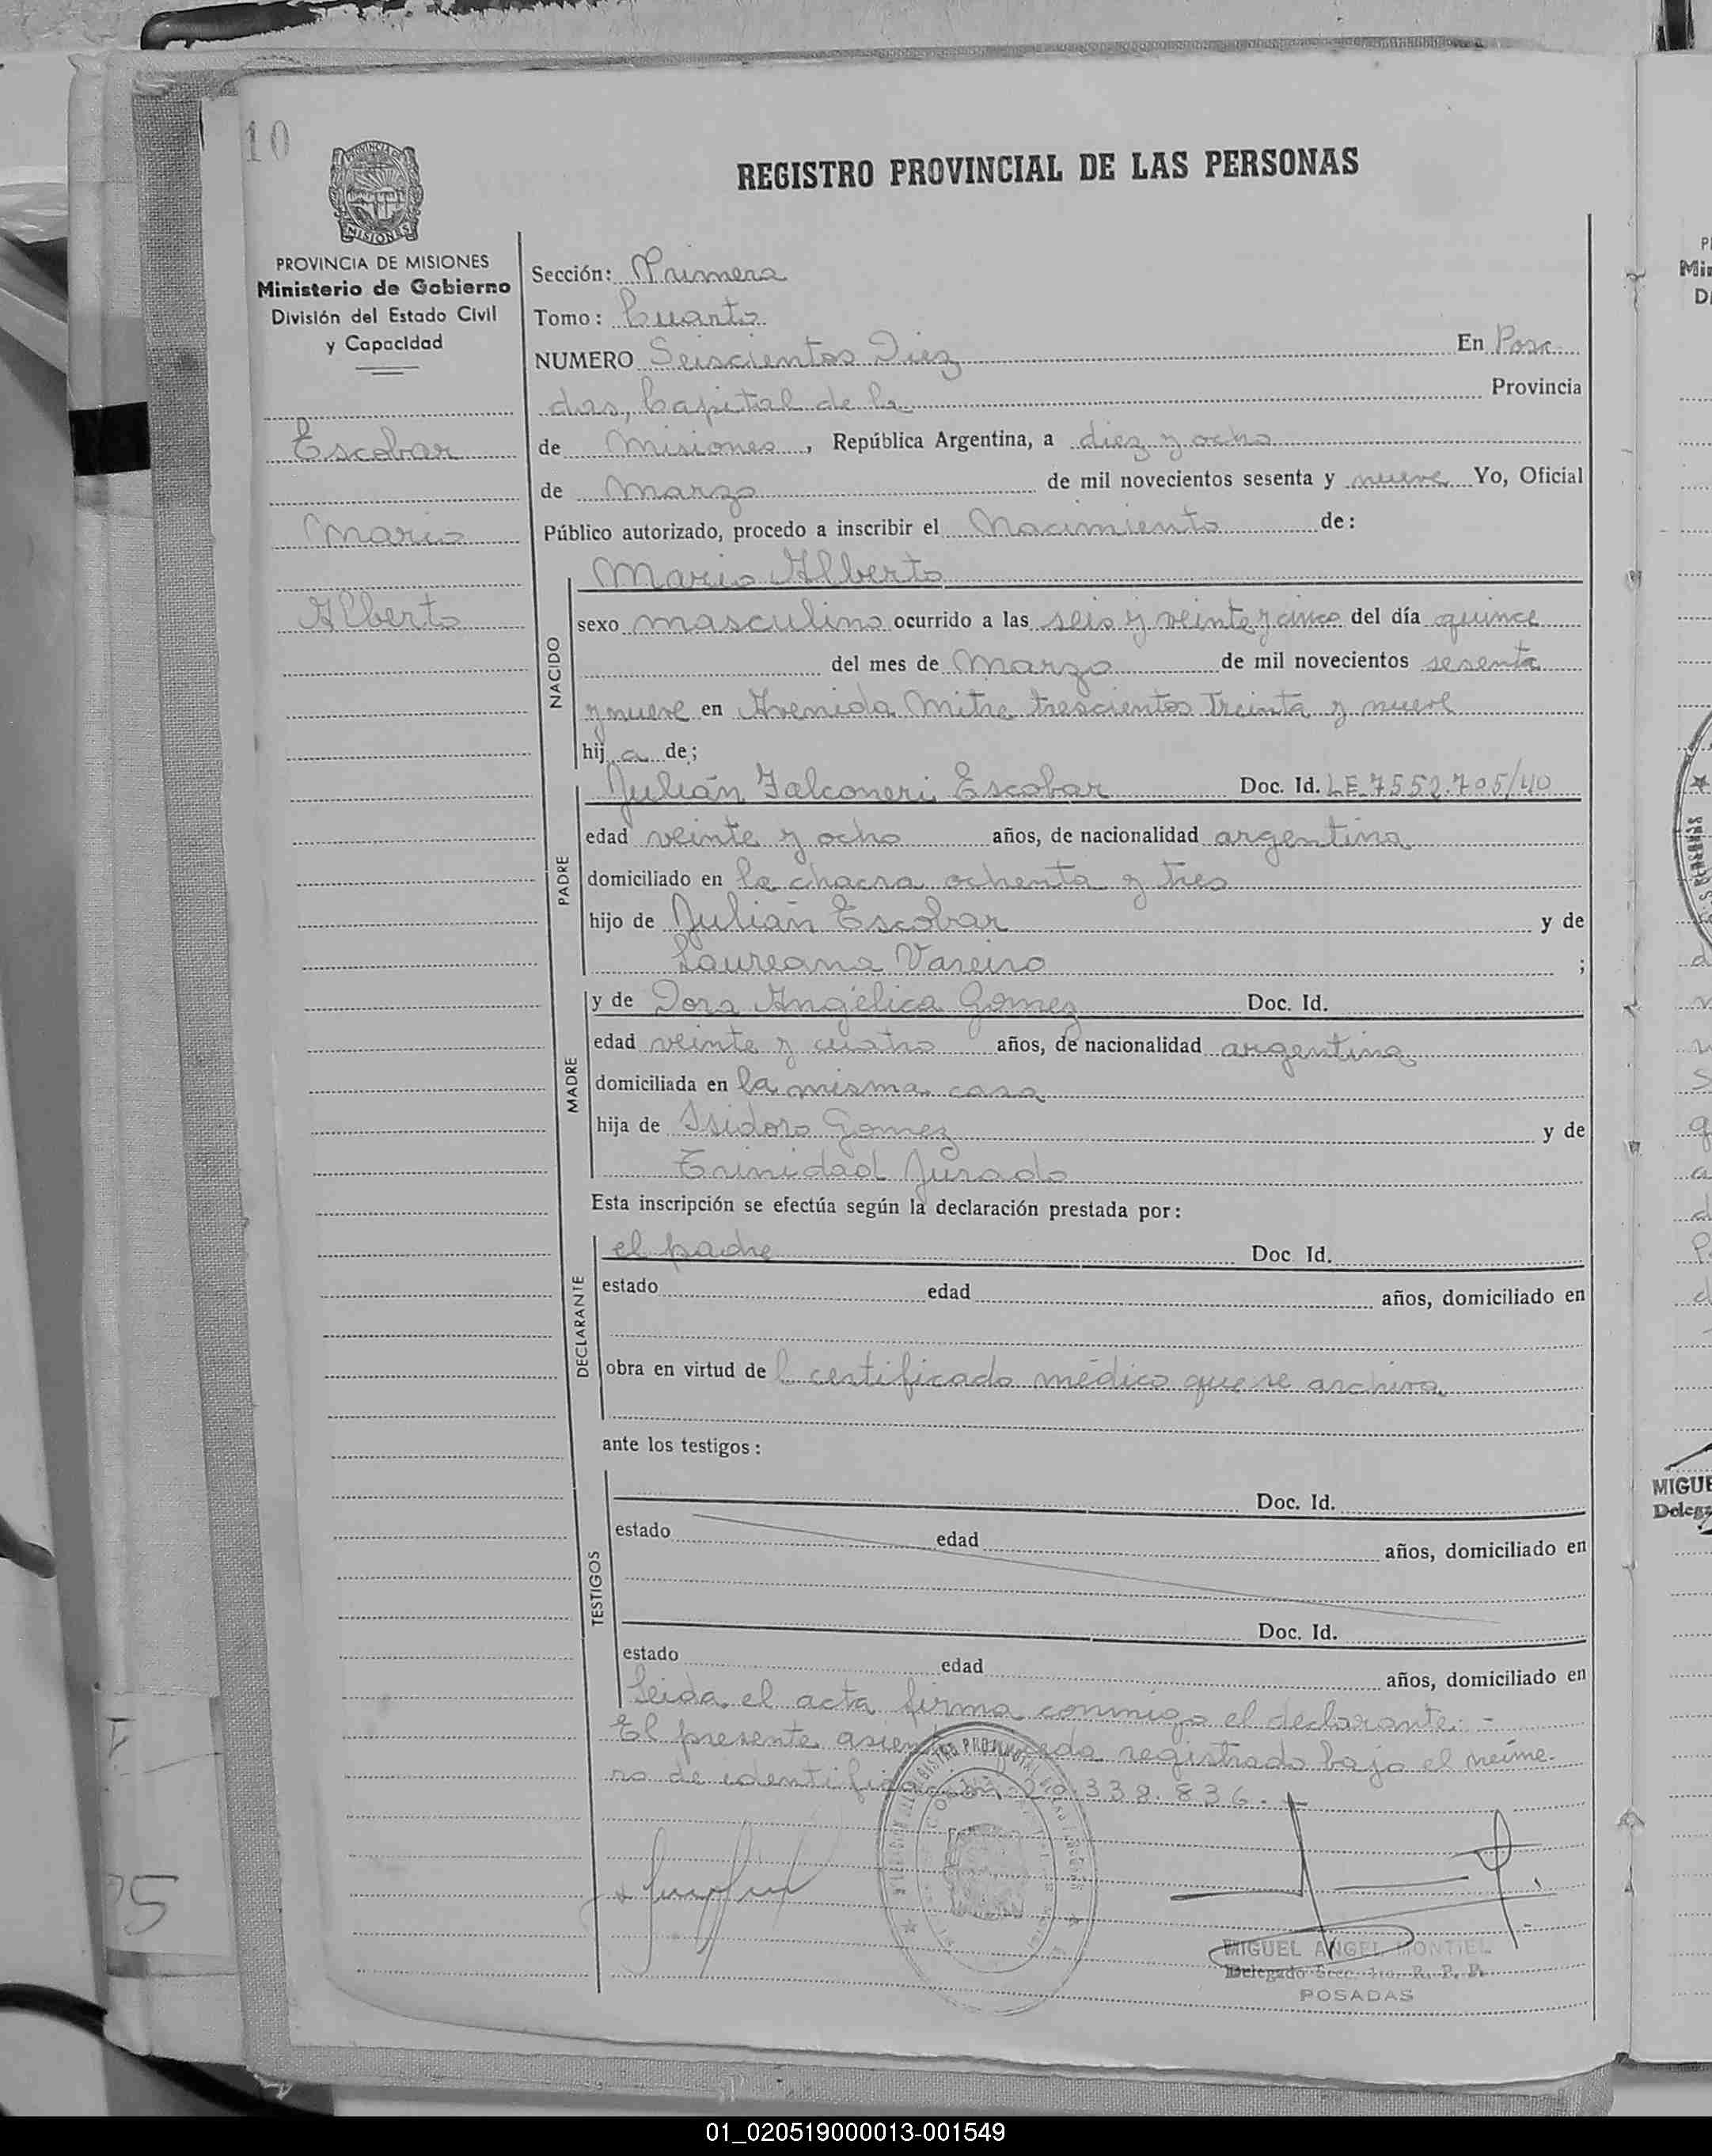 10
REGISTRO PROVINCIAL DE LAS PERSONAS
PROVINCIA DE MISIONES
Ministerio de Gobierno
División del Estado Civil
y Capacidad
Escobar
Mario
Alberto
Sección: Primera
Tomo: Cuarto
NUMERO Seiscientos Diez En Posa
das, Capital de la Provincia
de Misiones, República Argentina, a diez y ocho
de Marzo de mil novecientos sesenta y nueve Yo, Oficial
Público autorizado, procedo a inscribir el Nacimiento de:
NACIDO
Mario Alberto
sexo masculino ocurrido a las seis y veinte y cinco del día quince
del mes de Marzo de mil novecientos sesenta
y nueve en Avenida Mitre trescientos treinta y nueve
hij a de;
PADRE
Julián Falconeri Escobar Doc. Id. LE 7552.705/40
edad veinte y ocho años, de nacionalidad argentina
domiciliado en la chacra ochenta y tres
hijo de Julián Escobar y de
Laureana Vareiro ;
MADRE
y de Dora Angélica Gomez Doc. Id.
edad veinte y cuatro años, de nacionalidad argentina
domiciliada en la misma casa
hija de Isidoro Gomez y de
Trinidad Jurado
Esta inscripción se efectúa según la declaración prestada por:
DECLARANTE
el padre Doc Id.
estado edad años, domiciliado en
obra en virtud de l certificado médico que se archiva
ante los testigos:
TESTIGOS
Doc. Id.
estado edad años, domiciliado en
Doc. Id.
estado edad años, domiciliado en
Leida el acta firma conmigo el declarante. -
El presente asiento queda registrado bajo el núme-
ro de identificación 20.338.836. -
MIGUEL ANGEL MONTIEL
Delegado Secc. 1ra. R. P. P.
POSADAS
01_020519000013-001549